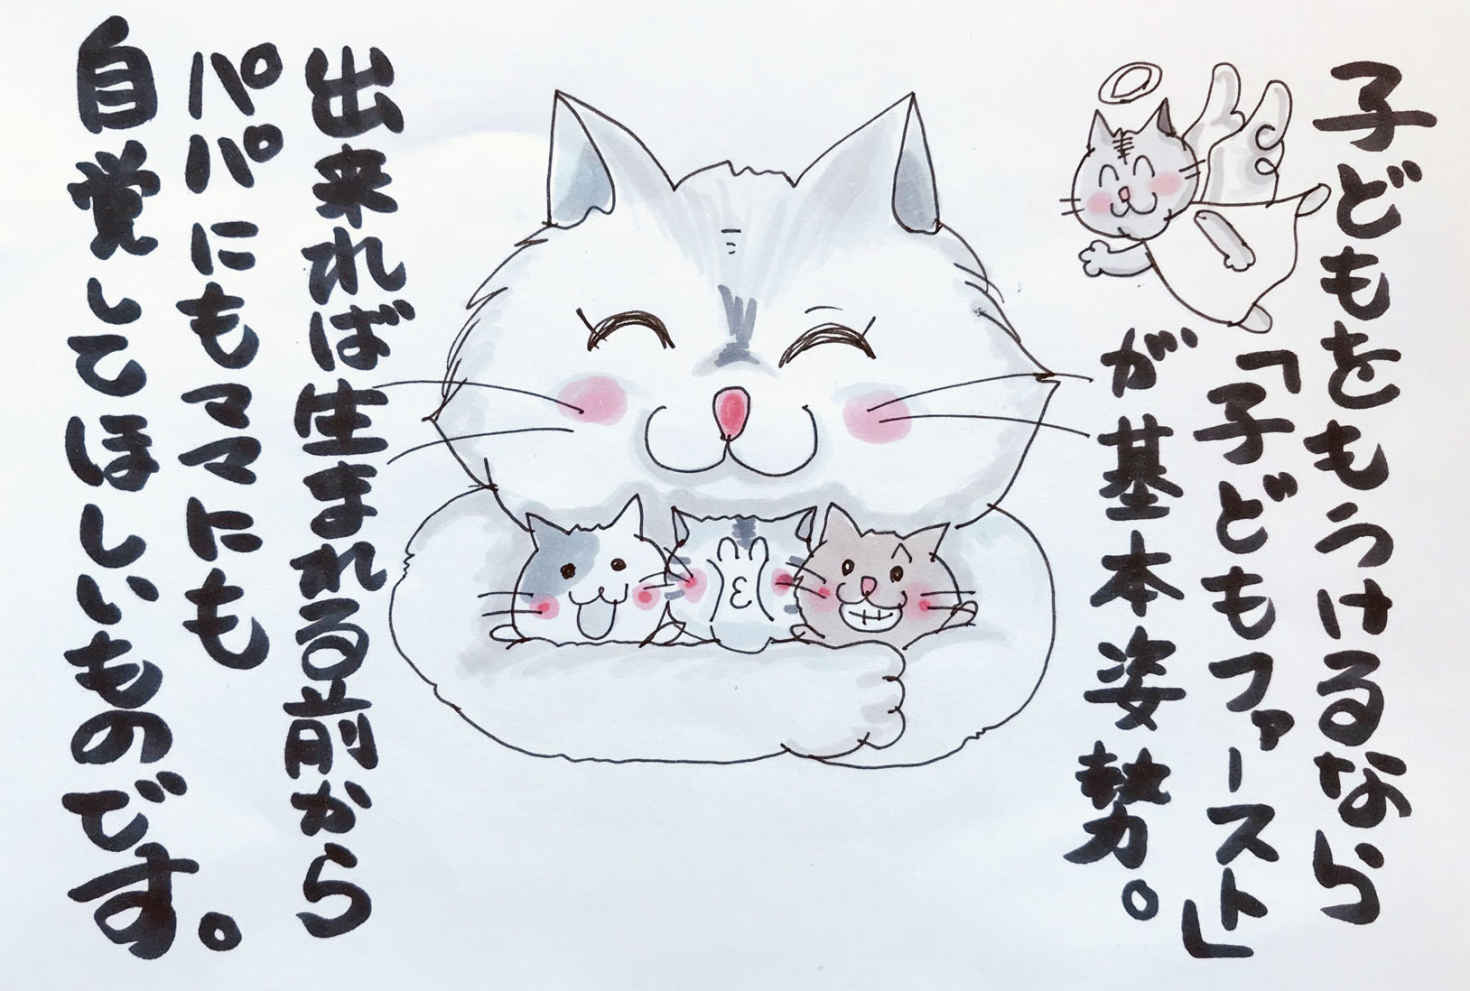 子どもをもうけるなら
「子どもファースト」
が基本姿勢。
出来れば生まれる前から
パパにもママにも
自覚してほしいものです。